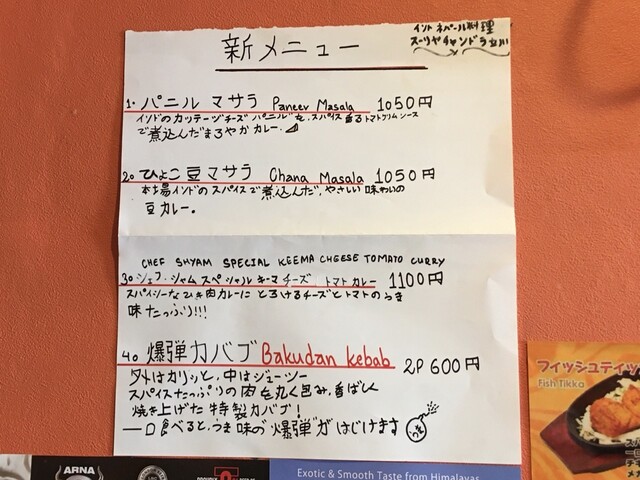 新メニュー
インド ネパール料理
スーリヤチャンドラ立川
1. パニル マサラ Paneer Masala 1050円
インドのカッテージチーズ パニルを、スパイス香るトマトクリームソース
で煮込んだまろやかカレー。
2. ひよこ豆マサラ Chana Masala 1050円
本場インドのスパイスで煮込んだ、やさしい味わいの
豆カレー。
CHEF SHYAM SPECIAL KEEMA CHEESE TOMATO CURRY
3. シェフ・シャム スペシャル キーマ チーズ トマト カレー 1100円
スパイシーなひき肉カレーに とろけるチーズとトマトのうま
味たっぷり!!!
4. 爆弾カバブ Bakudan kebab 2P 600円
外はカリッと、中はジューシー
スパイスたっぷりの肉を丸く包み、香ばしく
焼き上げた 特製カバブ!
一口食べると、うま味の 爆弾が はじけます
フィッシュティッ
Fish Tikka
ARNA
Exotic & Smooth Taste from Himalayas